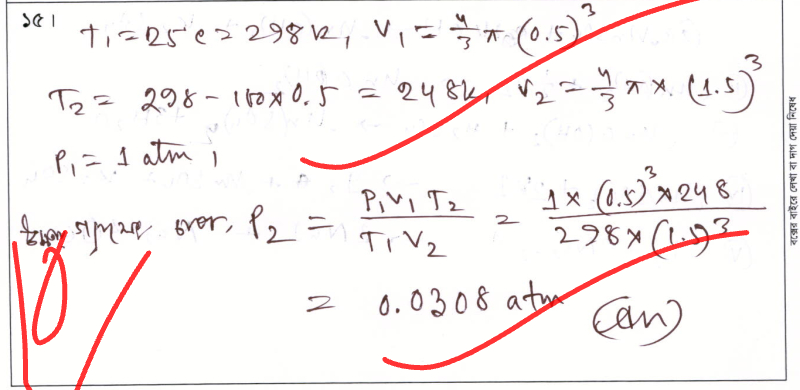 ১৫।
T₁ = 25°c = 298 K, V₁ = 4/3 π (0.5)³
T₂ = 298 - 100×0.5 = 248K, V₂ = 4/3 π × (1.5)³
P₁ = 1 atm,
P₂ = P₁V₁T₂ / T₁V₂ = 1 × (0.5)³ × 248 / 298 × (1.5)³
= 0.0308 atm (Ans)
বক্সের বাইরে লেখা বা দাগ দেয়া নিষেধ